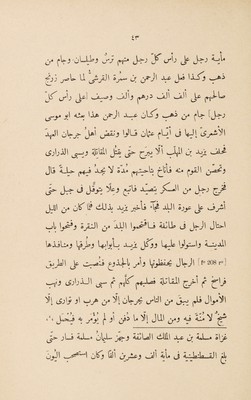 ٤٣
مأية رجل على رأس كلّ رجل منهم ترس وطيلسان وجام من
ذهب وكذا فعل عبد الرحمن بن سمُرة القرشىّ لما حاصر زرنج
صالحهم على ألف ألف درهم وألف وصيف [على رأس كلّ
رجل] جام من ذهب وكان عبد الرحمن هذا بعثه ابو موسى
الأشعرىّ إليها فى أيّام عثمان قالوا ونقض أهل جرجان العهد
فحلف يزيد بن المهلّب ألّا يبرح حتّى يقتل المقاتلة ويسبى الذرارى
وتحصّن القوم منه فأناخ بناحيتهم مُدّة لا يجد فيهم حيلةً قال
فخرج رجل من العسكر يتصيّد فاتبع وعلًا يتوقّل فى جبل حتّى
أشرف على عورة البلد فجاء فأخبر يزيد بذلك فلمّا كان من الليل
احتال الرجل فى طائفة فاقتحموا البلد من النقرة وفتحوا باب
المدينة واستولوا عليها ووكّل يزيد بأبوابها وطُرقها ومنافذها
[f° 208 r°] الرجال يحفظونها وأمر بالجذوع فنُصبت على الطريق
فراسخ ثم أخرج المقاتلة فصلبهم كلّهم ثم سبى الذرارى ونهب
الأموال فلم يبق من الناس بجرجان إلّا من هرب او توارى إلّا
شيخٌ لا مُنّة فيه ومن المال إلّا ما دُفن أو لم يُؤْبَه به فيُحمل ٠٠٠
غزاة مسلمة بن عبد الملك الصائفة وجهّز سليمان مسلمة فسار حتّى
بلغ القسطنطينية فى مأية ألف وعشرين ألفًا وكان استصحب اليون